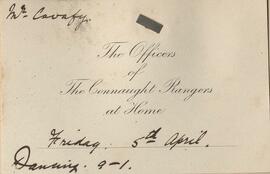 Mr. Cavafy.
The Officers
of
The Connaught Rangers
at Home
Friday. 5th April.
Dancing. 9-1.